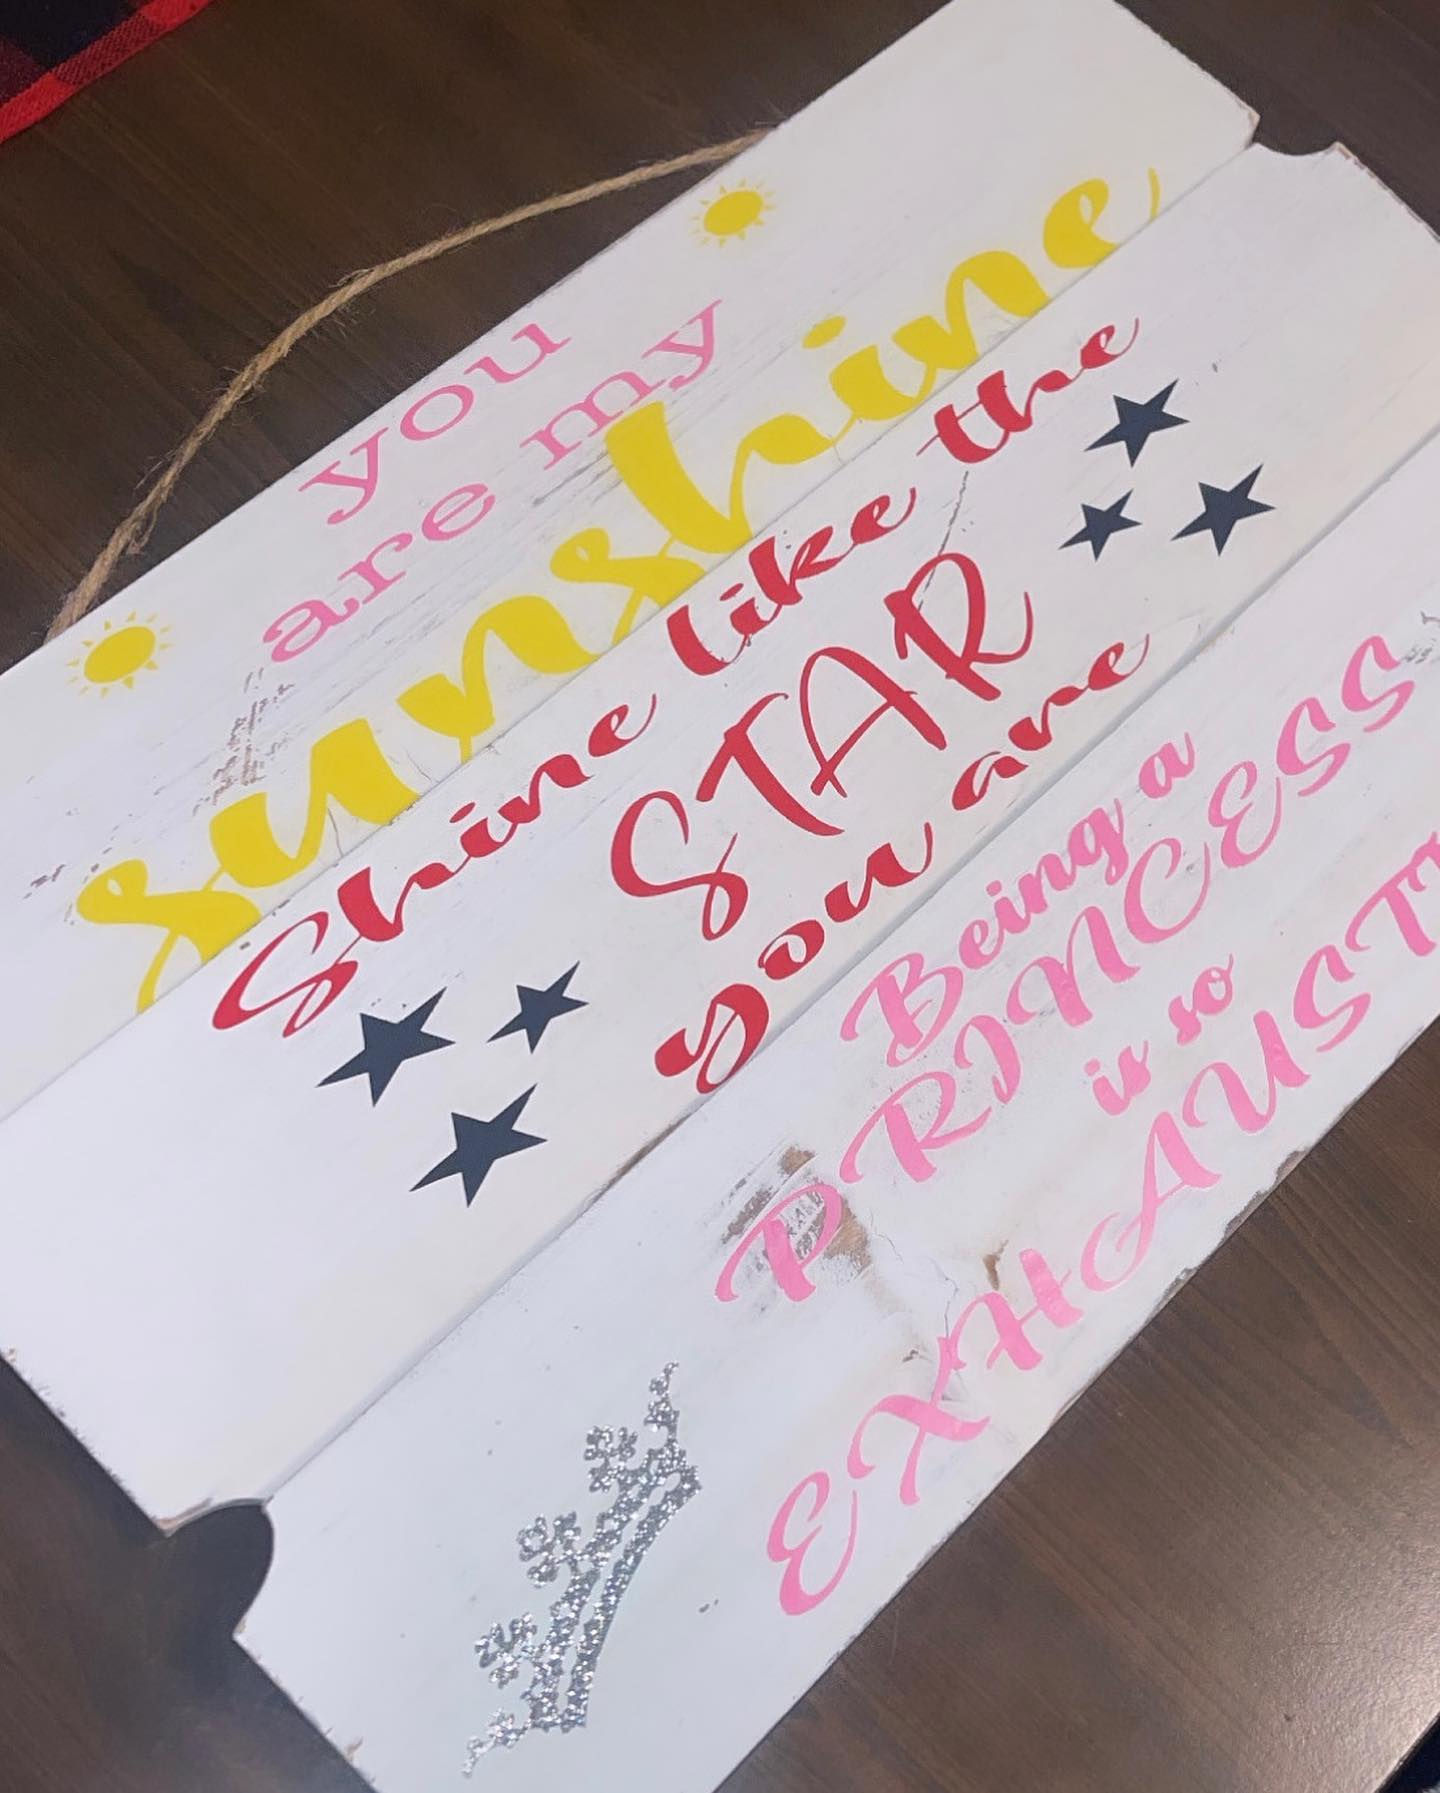 you
are my
sunshine
Shine like the
STAR
you are
Being a
PRINCESS
is so